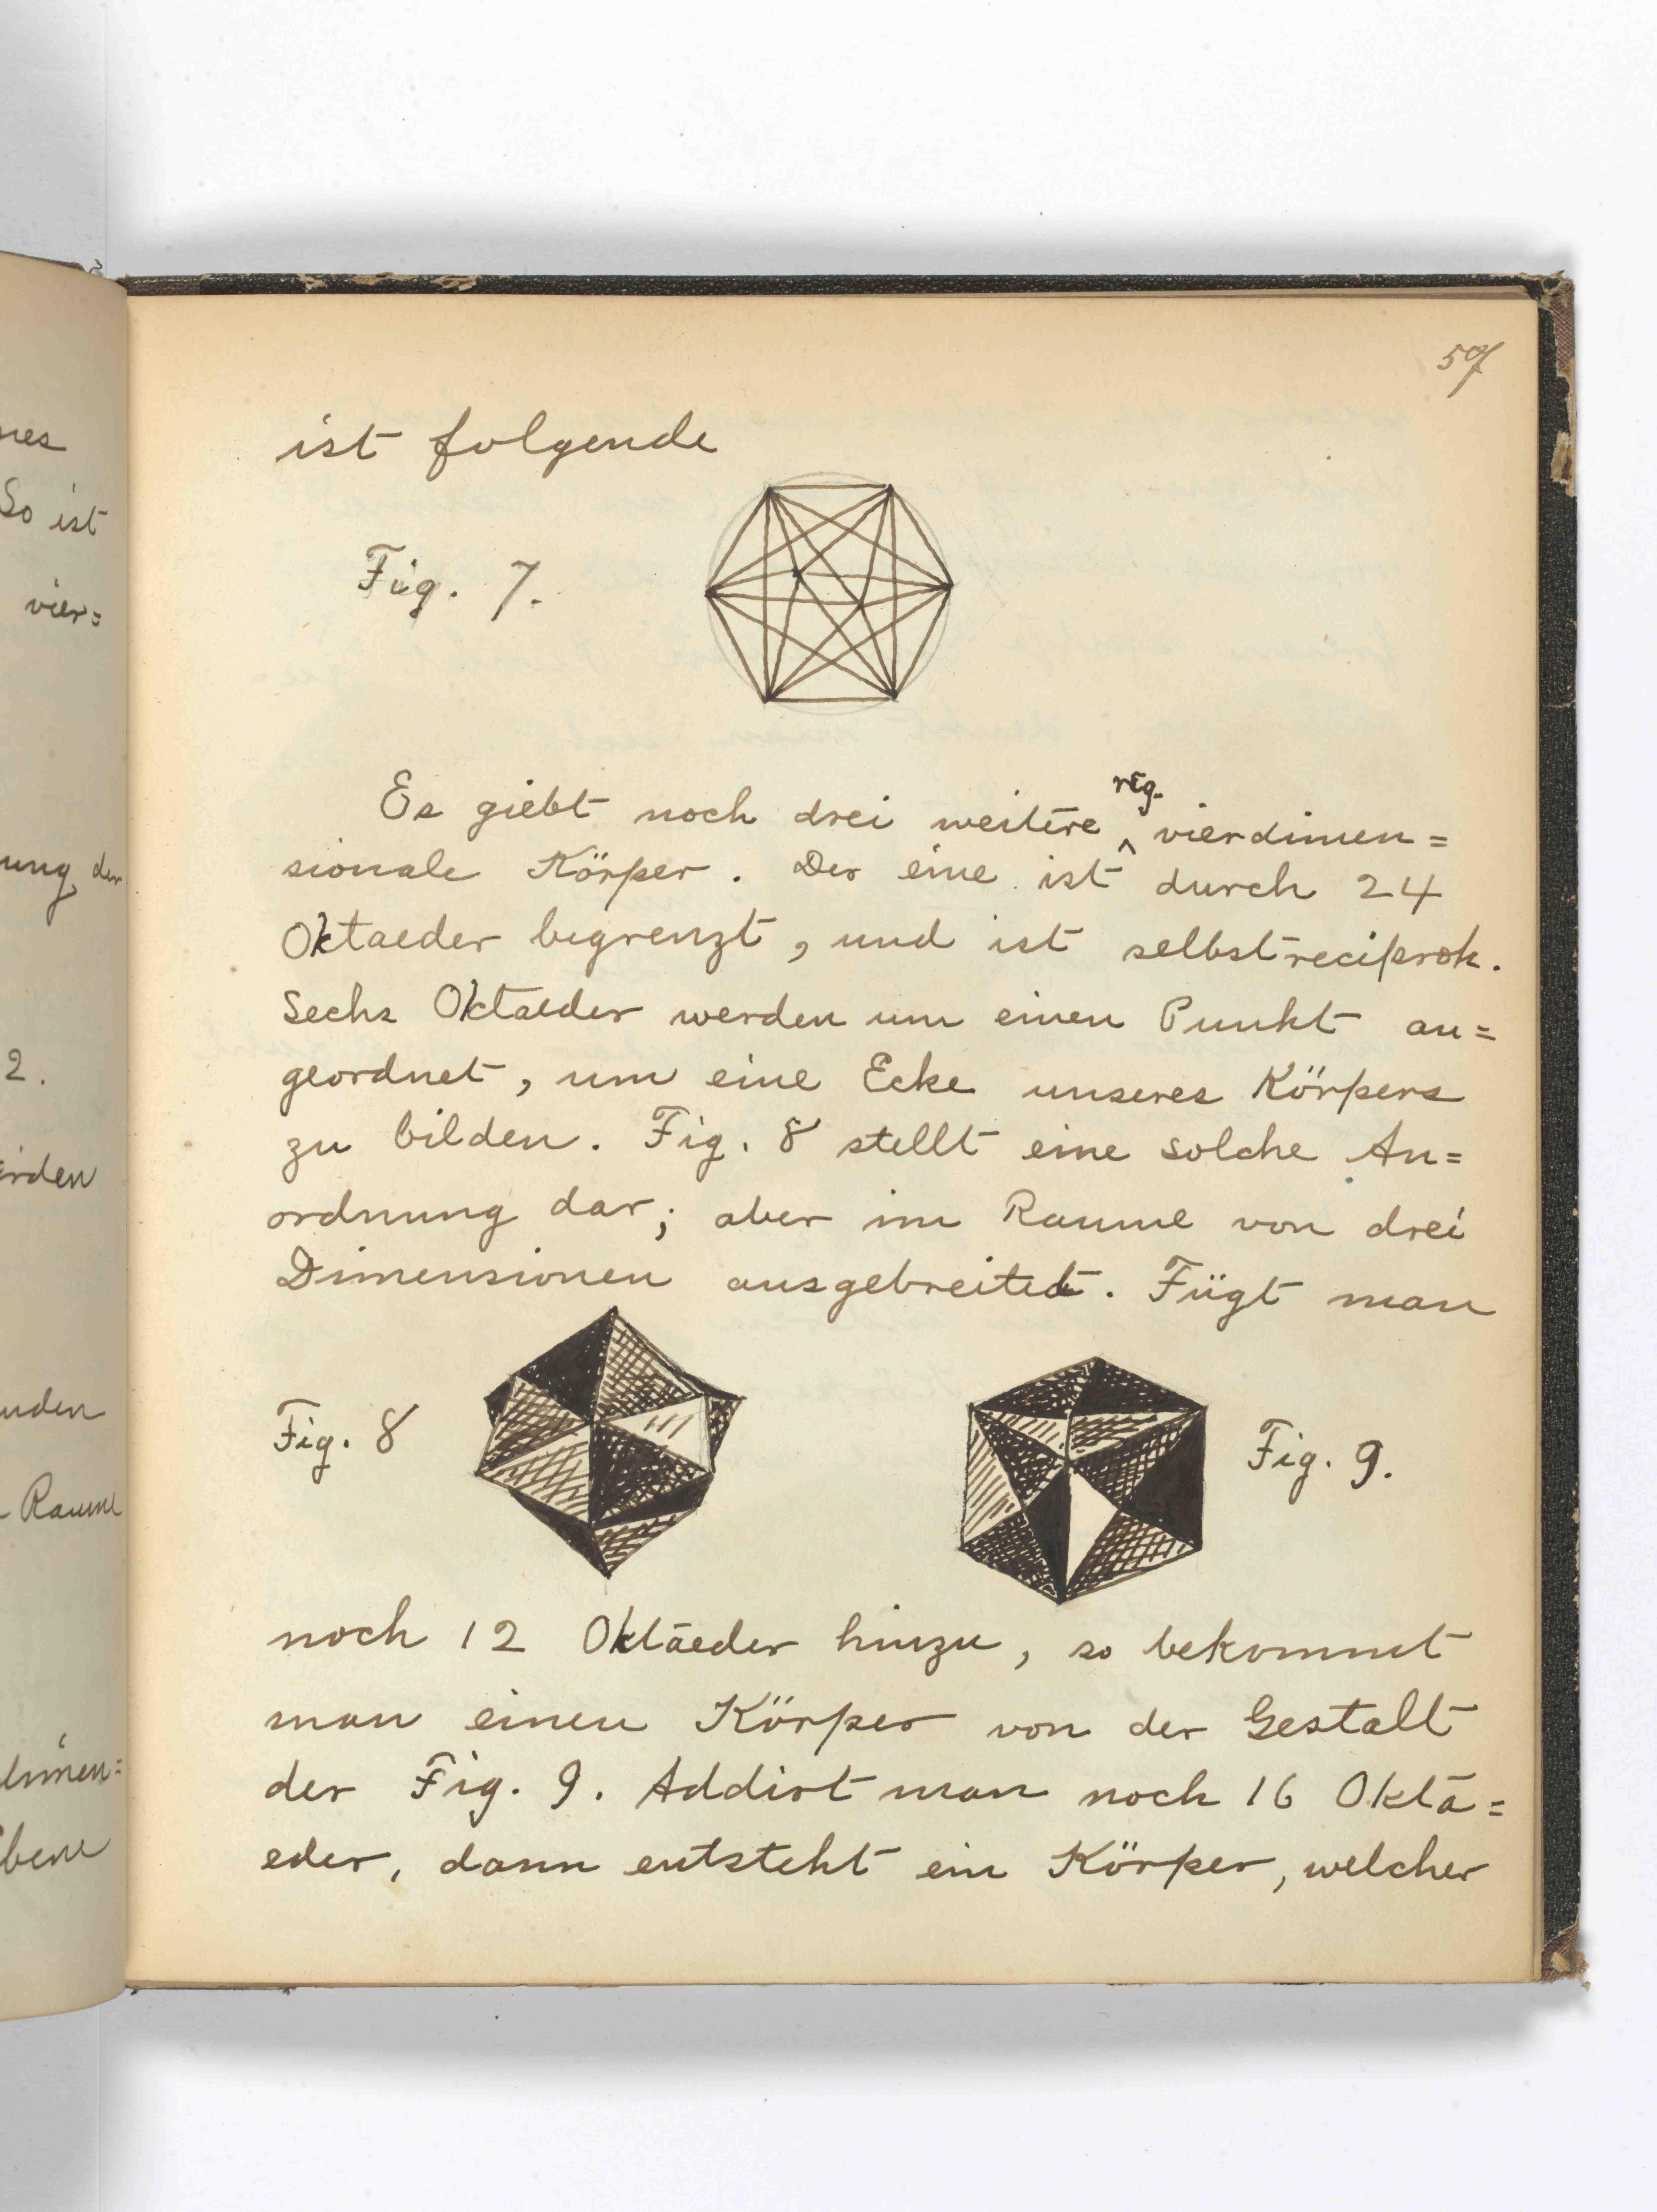 57
nes
So ist
vier=
ung der
2.
Raume
bene
ist folgende
Fig. 7.
Es giebt noch drei weitere reg. vierdimen=
sionale Körper. Der eine ist durch 24
Oktaeder begrenzt, und ist selbstreciprok.
Sechs Oktaeder werden um einen Punkt an=
geordnet, um eine Ecke unseres Körpers
zu bilden. Fig. 8 stellt eine solche An=
ordnung dar; aber im Raume von drei
Dimensionen ausgebreitet. Fügt man
Fig. 8
Fig. 9.
noch 12 Oktaeder hinzu, so bekommt
man einen Körper von der Gestalt
der Fig. 9. Addirt man noch 16 Okta=
eder, dann entsteht ein Körper, welcher